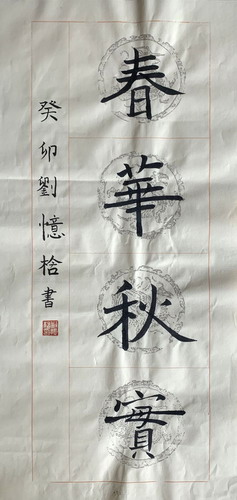 春華秋實
癸卯劉憶桧書